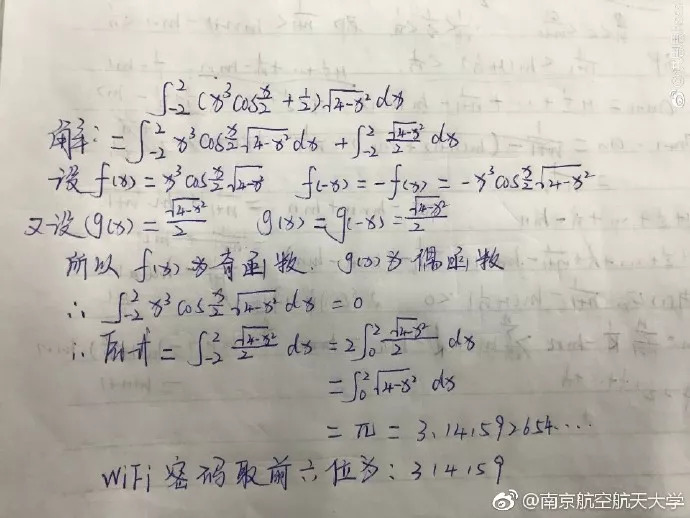 ∫₋₂² (x³cos x/2 + 1/2)√4-x² dx
解: = ∫₋₂² x³cos x/2 √4-x² dx + ∫₋₂² √4-x²/2 dx
设 f(x) = x³cos x/2 √4-x² f(-x) = -f(x) = -x³cos x/2 √4-x²
又设 (g(x) = √4-x²/2 g(x) = g(-x) = √4-x²/2
所以 f(x) 为奇函数. g(x) 为偶函数
∴ ∫₋₂² x³cos x/2 √4-x² dx = 0
∴ 原式 = ∫₋₂² √4-x²/2 dx = 2∫₀² √4-x²/2 dx
= ∫₀² √4-x² dx
= π = 3.14.592654....
WiFi 密码取前六位为: 314159
@南京航空航天大学